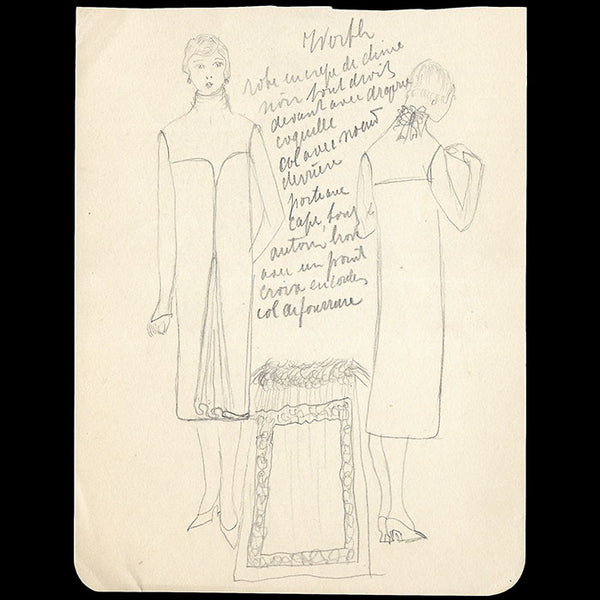 Worth
robe en crepe de chine
noir tout droit
devant avec draperie
coquille
col avec noeud
derrière
porte avec
cape, tout
autour
avec un point
croix en cordes
col de fourrure